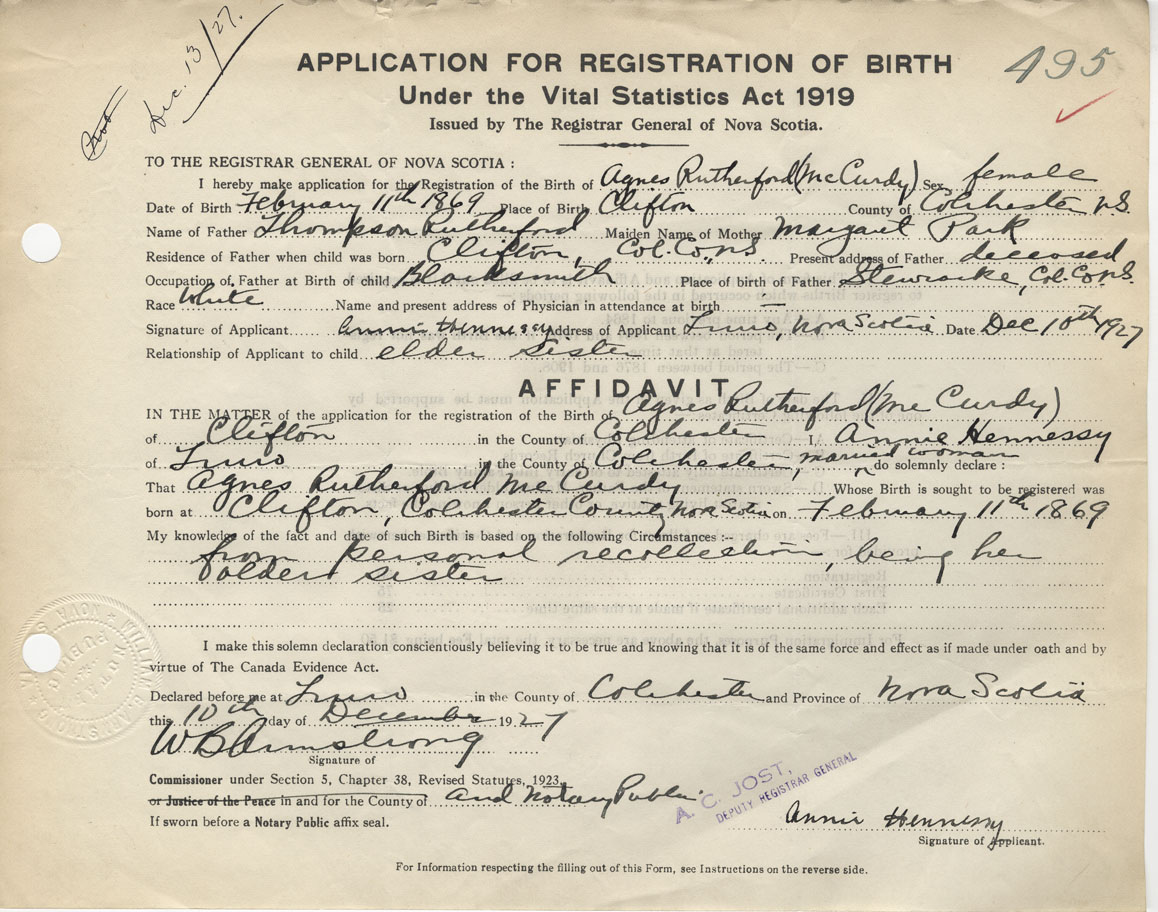 Dec. 13/27.
495
APPLICATION FOR REGISTRATION OF BIRTH
Under the Vital Statistics Act 1919
Issued by The Registrar General of Nova Scotia.
TO THE REGISTRAR GENERAL OF NOVA SCOTIA :
I hereby make application for the Registration of the Birth of Agnes Rutherford (McCurdy) Sex female
Date of Birth February 11th 1869 Place of Birth Clifton County of Colchester N.S.
Name of Father Thompson Rutherford Maiden Name of Mother Margaret Park
Residence of Father when child was born Clifton, Col. Co., N.S. Present address of Father deceased
Occupation of Father at Birth of child Blacksmith Place of birth of Father Stewiacke, Col. Co. N.S.
Race White Name and present address of Physician in attendance at birth —
Signature of Applicant Annie Hennessy Address of Applicant Truro, Nova Scotia Date Dec 10th 1927
Relationship of Applicant to child elder sister
AFFIDAVIT
IN THE MATTER of the application for the registration of the Birth of Agnes Rutherford (McCurdy)
of Clifton in the County of Colchester I, Annie Hennessy
of Truro in the County of Colchester, married woman do solemnly declare :
That Agnes Rutherford McCurdy Whose Birth is sought to be registered was
born at Clifton, Colchester County Nova Scotia on February 11th 1869
My knowledge of the fact and date of such Birth is based on the following Circumstances :--
from personal recollection, being her
older sister
I make this solemn declaration conscientiously believing it to be true and knowing that it is of the same force and effect as if made under oath and by
virtue of The Canada Evidence Act.
Declared before me at Truro in the County of Colchester and Province of Nova Scotia
this 10th day of December 1927
W B Armstrong
Signature of
Commissioner under Section 5, Chapter 38, Revised Statutes, 1923,
or Justice of the Peace in and for the County of and Notary Public.
A. C. JOST,
DEPUTY REGISTRAR GENERAL
If sworn before a Notary Public affix seal.
Annie Hennessy
Signature of Applicant.
For Information respecting the filling out of this Form, see Instructions on the reverse side.